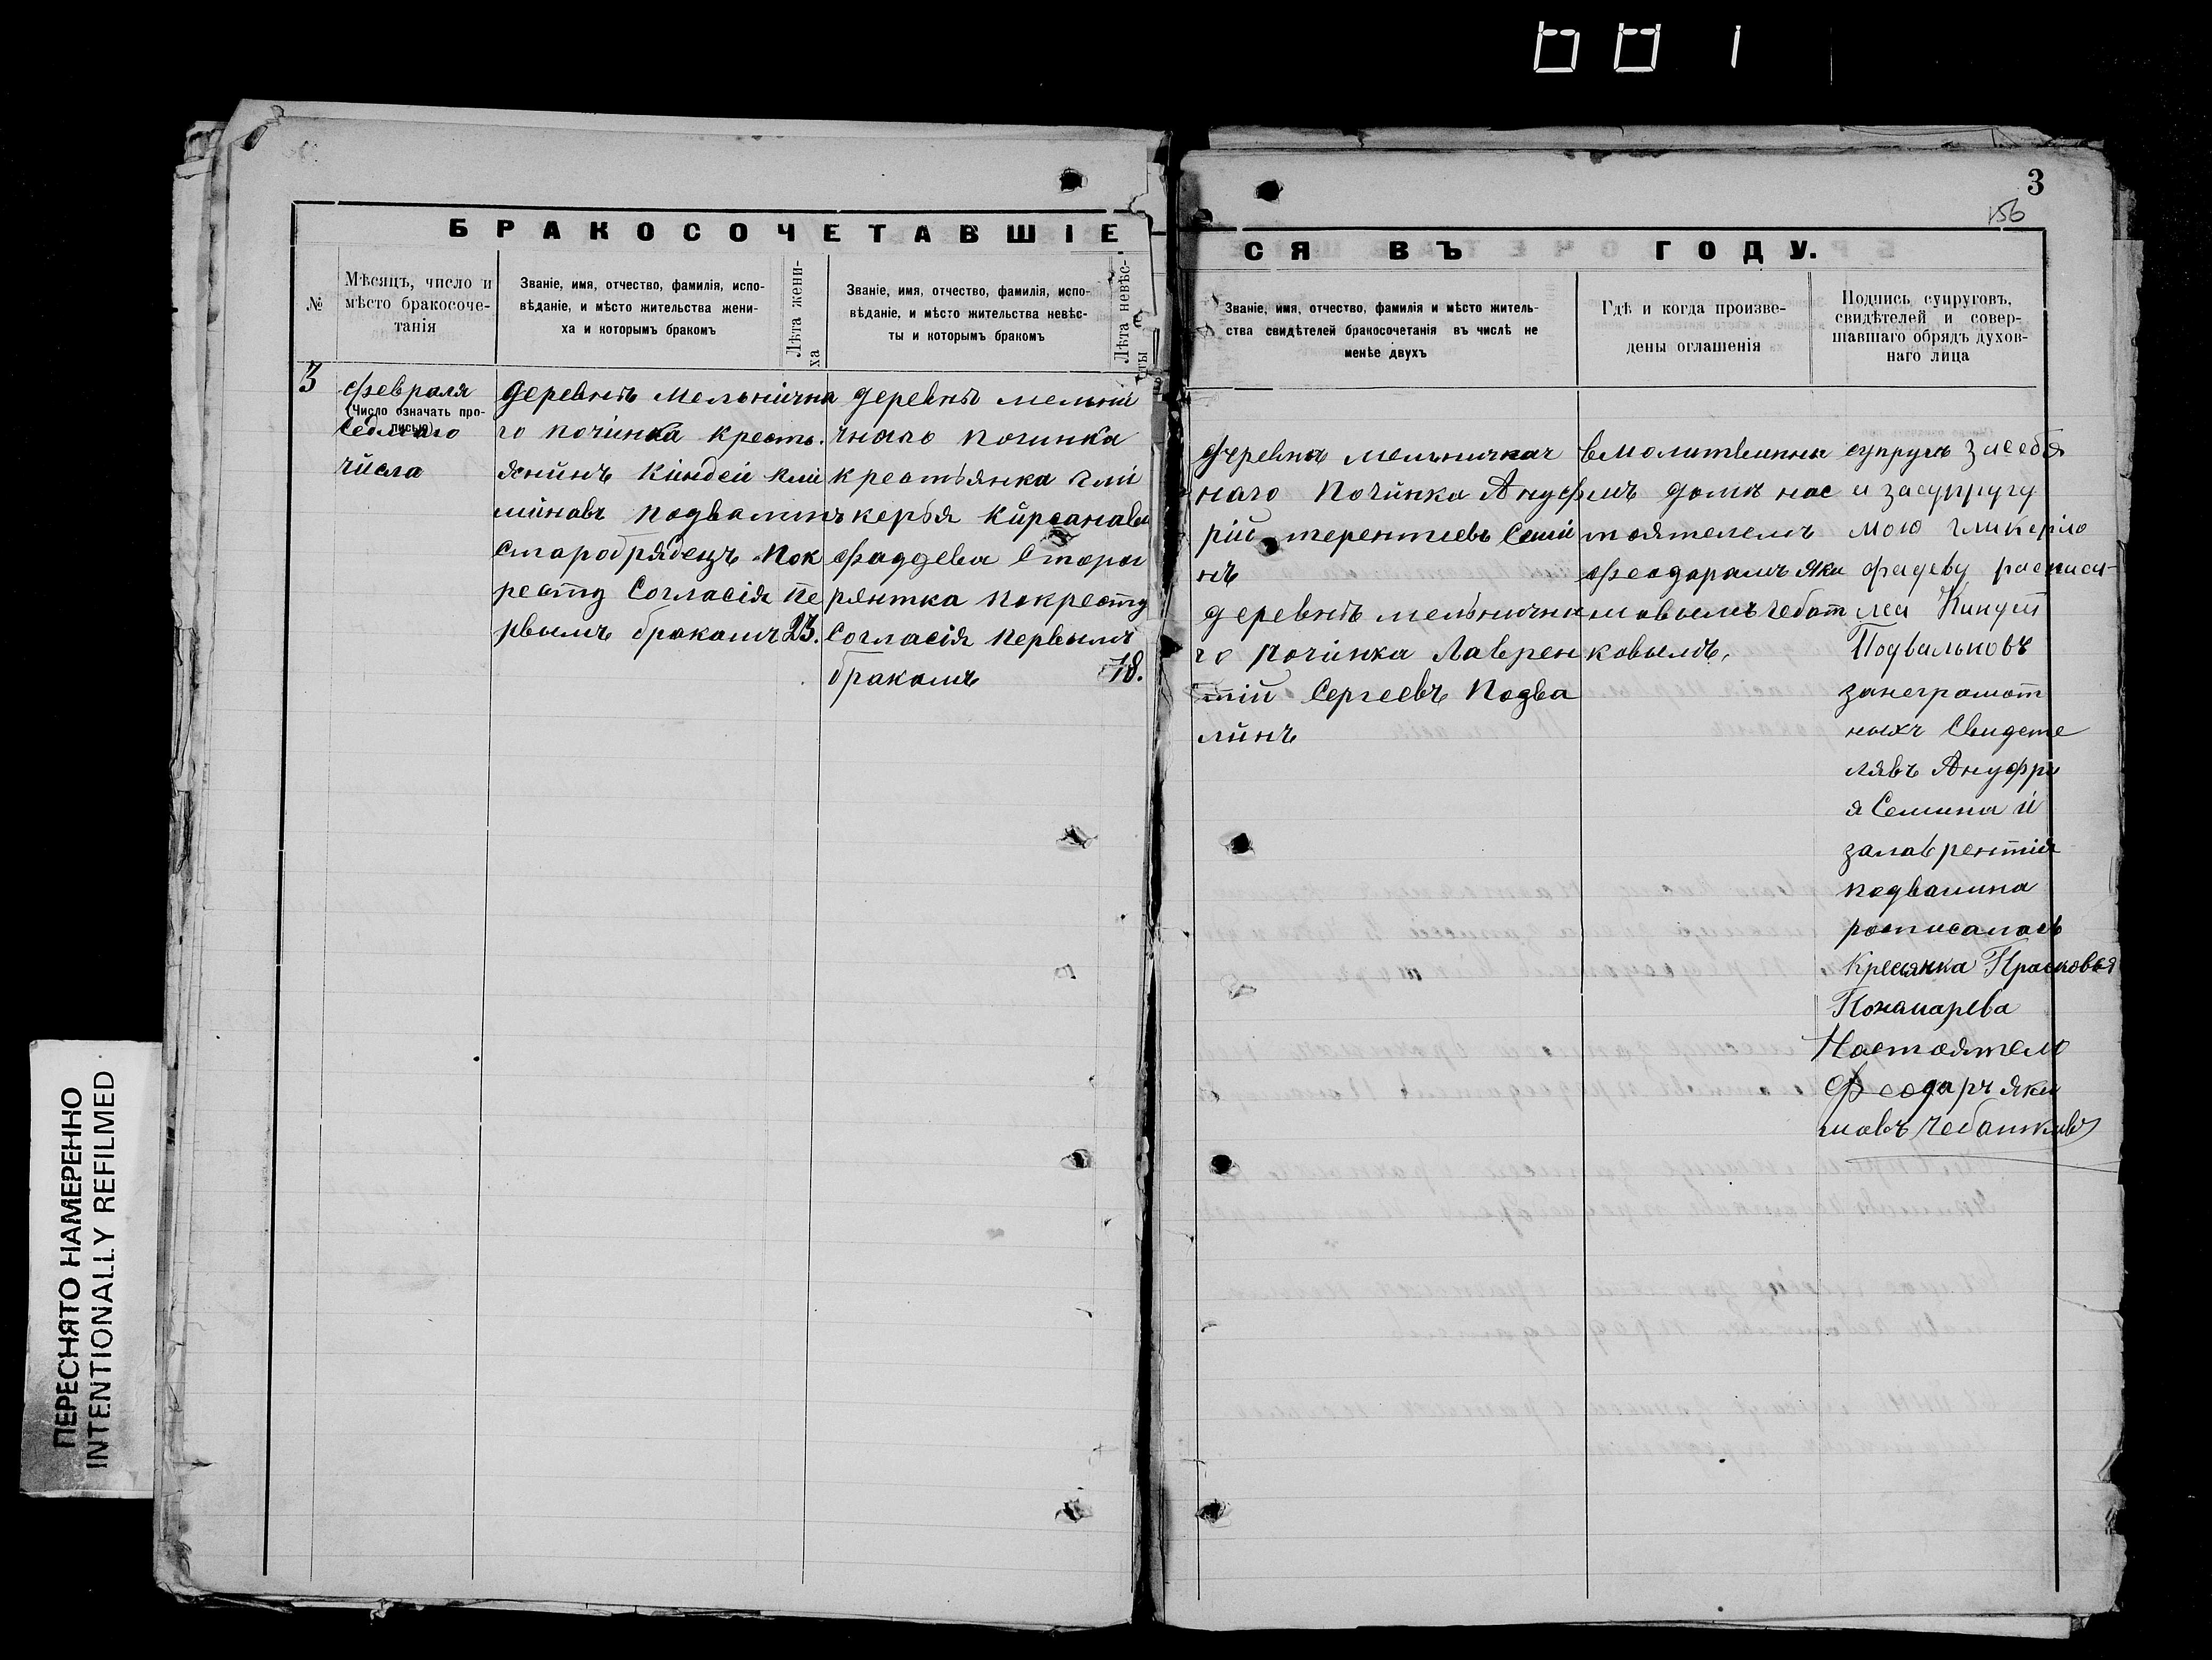 3
156
БРАКОСОЧЕТАВШІЕ
СЯ ВЪ ГОДУ.
№
Мѣсяцъ, число и
мѣсто бракосоче-
танія
Званіе, имя, отчество, фамилія, испо-
вѣданіе, и мѣсто жительства жени-
ха и которымъ бракомъ
Лѣта жени-
ха
Званіе, имя, отчество, фамилія, испо-
вѣданіе, и мѣсто жительства невѣс-
ты и которымъ бракомъ
Лѣта невѣс-
ты
Званіе, имя, отчество, фамилія и мѣсто житель-
ства свидѣтелей бракосочетанія въ числѣ не
менѣе двухъ
Гдѣ и когда произве-
дены оглашенія
Подпись супруговъ,
свидѣтелей и совер-
шавшаго обрядъ духов-
наго лица
3
февраля
(Число означать про-
писью)
Седмаго
числа
деревнѣ Мельнична
го починка кресть.
янинъ Киндей Кли
миновъ подвалинъ
Старобрядецъ Пок
ресту Согласія пе
рвымъ бракомъ 23.
деревнѣ мельни
чнаго починка
крестьянка Гли
керья Кирсанава
фаддева Старов
рянтка покресту
Согласія первымъ
бракомъ 18.
деревнѣ мельнична
наго Починка Ануф
рій терентиевъ Семи
нъ
деревнѣ мельнична
го починка Лаврен
тій Сергеевъ Подва
линъ
вмолитвинны
мъ домѣ нас
тоятелемъ
феодорамъ Яки
мовымъ Чебот
ковымъ,
супругъ засебя
и засупругу
мою гликерію
фадеву росписа-
лса Киндей
Подвальновъ
занеграмот
ныхъ Свидете
лявъ Ануфри
я Семина и
залаврентія
подвалина
росписалась
Кресянка Прасковея
Понамарева
Настоятель
Феодаръ Яки
мовъ Чеботковъ
ПЕРЕСНЯТО НАМЕРЕННО
INTENTIONALLY REFILMED